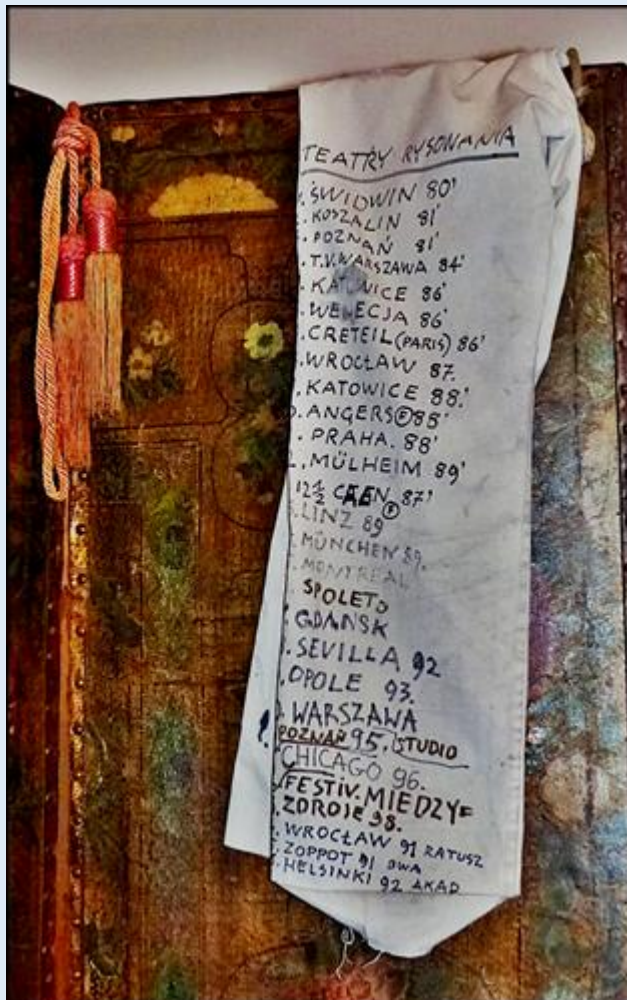 TEATRY RYSOWANIA
. ŚWIDWIN 80'
. KOSZALIN 81'
. POZNAŃ 81'
. T.V. WARSZAWA 84'
. KATOWICE 86'
. WENECJA 86'
. CRETEIL (PARIS) 86'
. WROCŁAW 87.
. KATOWICE 88.'
. ANGERS Ⓕ 88'
. PRAHA. 88'
. MÜLHEIM 89'
12½ CAEN Ⓕ 87'
. LINZ 89'
. MÜNCHEN 89.
. MONTREAL
. SPOLETO
. GDAŃSK
. SEVILLA 92
. OPOLE 93.
. WARSZAWA
POZNAŃ 95. STUDIO
CHICAGO 96.
. FESTIV. MIEDZY=
ZDROJE 98.
. WROCŁAW 91 RATUSZ
. ZOPPOT 91 BWA
. HELSINKI 92 AKAD